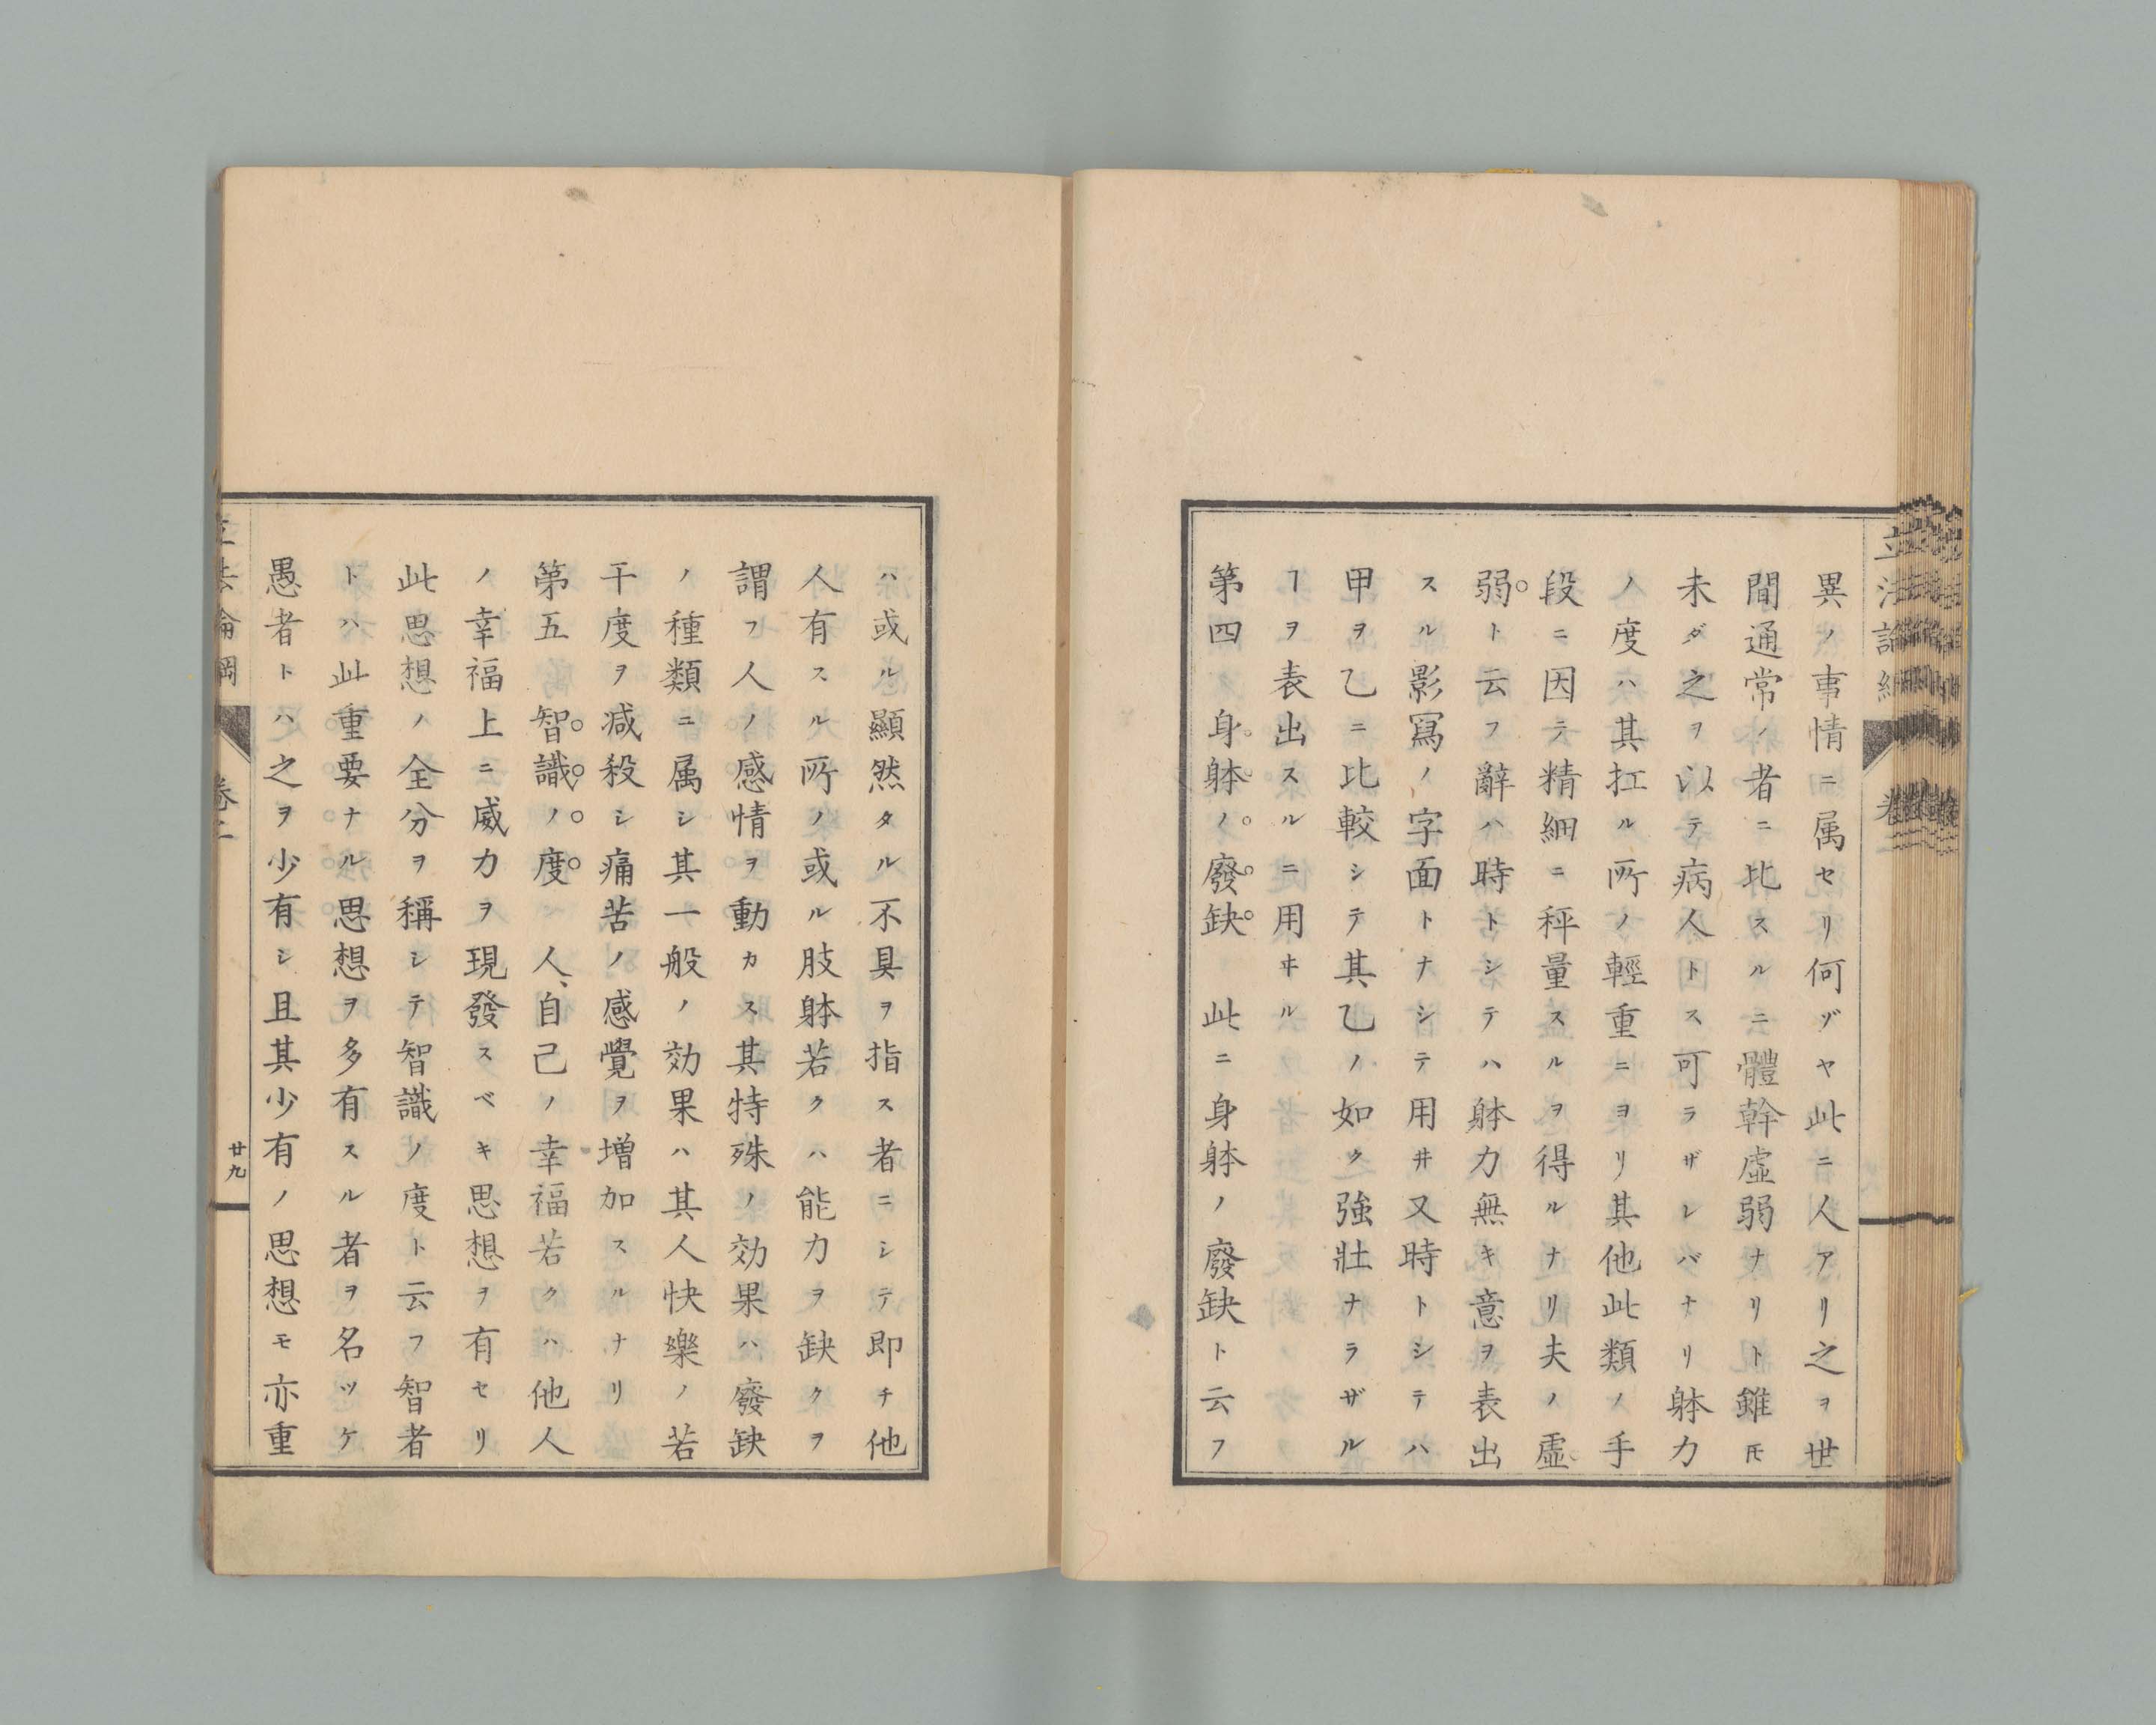 異ノ事情ニ属セリ何ヅヤ此ニ人アリ之ヲ世
間通常ノ者ニ比スルニ體幹虛弱ナリト雖𪜈
未ダ之ヲ以テ病人トス可ラザレバナリ躰力
ノ度ハ其扛ル所ノ輕重ニヨリ其他此類ノ手
段ニ因テ精細ニ秤量スルヲ得ルナリ夫ノ虛
弱ト云フ辭ハ時トシテハ躰力無キ意ヲ表出
スル影寫ノ字面トナシテ用ヰ又時トシテハ
甲ヲ乙ニ比較シテ其乙ノ如ク強壯ナラザル
ヿヲ表出スルニ用ヰル
第四 身躰ノ廢缺 此ニ身躰ノ廢缺ト云フ
ハ或ル顯然タル不具ヲ指ス者ニシテ即チ他
人有スル所ノ或ル肢躰若クハ能力ヲ缺クヲ
謂フ人ノ感情ヲ動カス其特殊ノ効果ハ廢缺
ノ種類ニ属シ其一般ノ効果ハ其人快樂ノ若
干度ヲ减殺シ痛苦ノ感覺ヲ増加スルナリ
第五 智識ノ度 人、自己ノ幸福若クハ他人
ノ幸福上ニ威力ヲ現發スベキ思想ヲ有セリ
此思想ノ全分ヲ稱シテ智識ノ度ト云フ智者
トハ此重要ナル思想ヲ多有スル者ヲ名ツケ
愚者トハ之ヲ少有シ且其少有ノ思想モ亦重
立法論綱 卷二 廿九